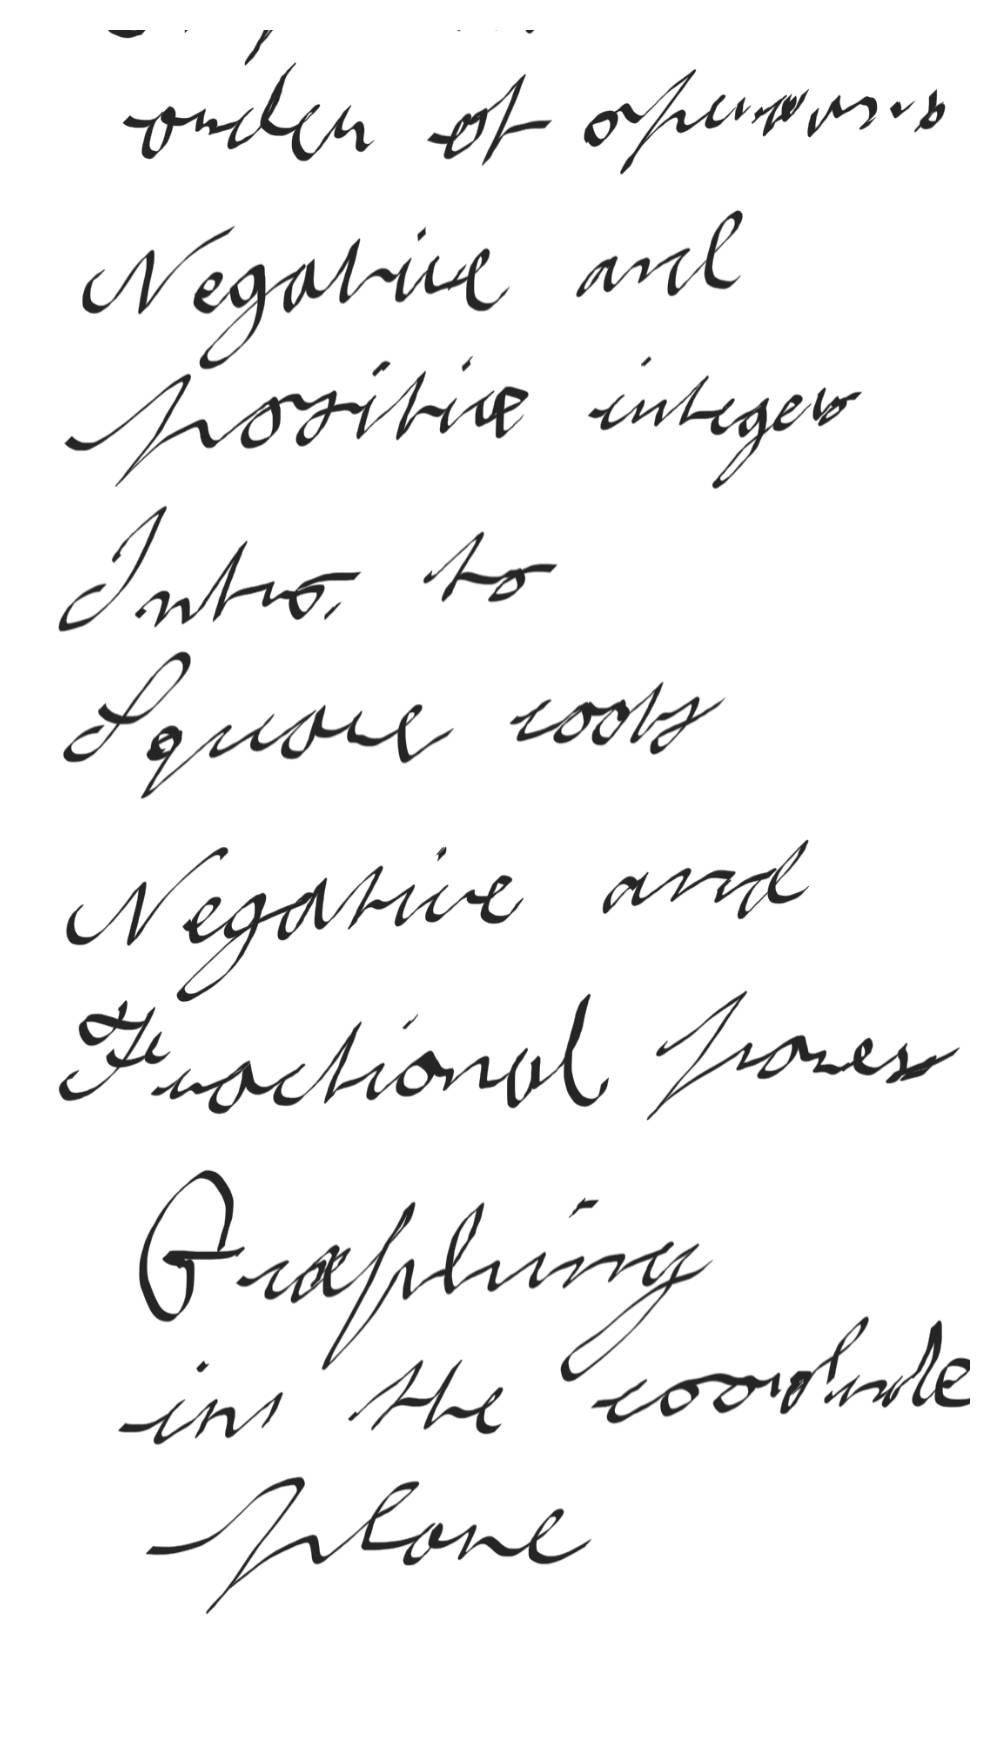 order of operations
Negative and
positive integers
Intro. to
Square roots
Negative and
Fractional powers
Graphing
in the coordinate
plane